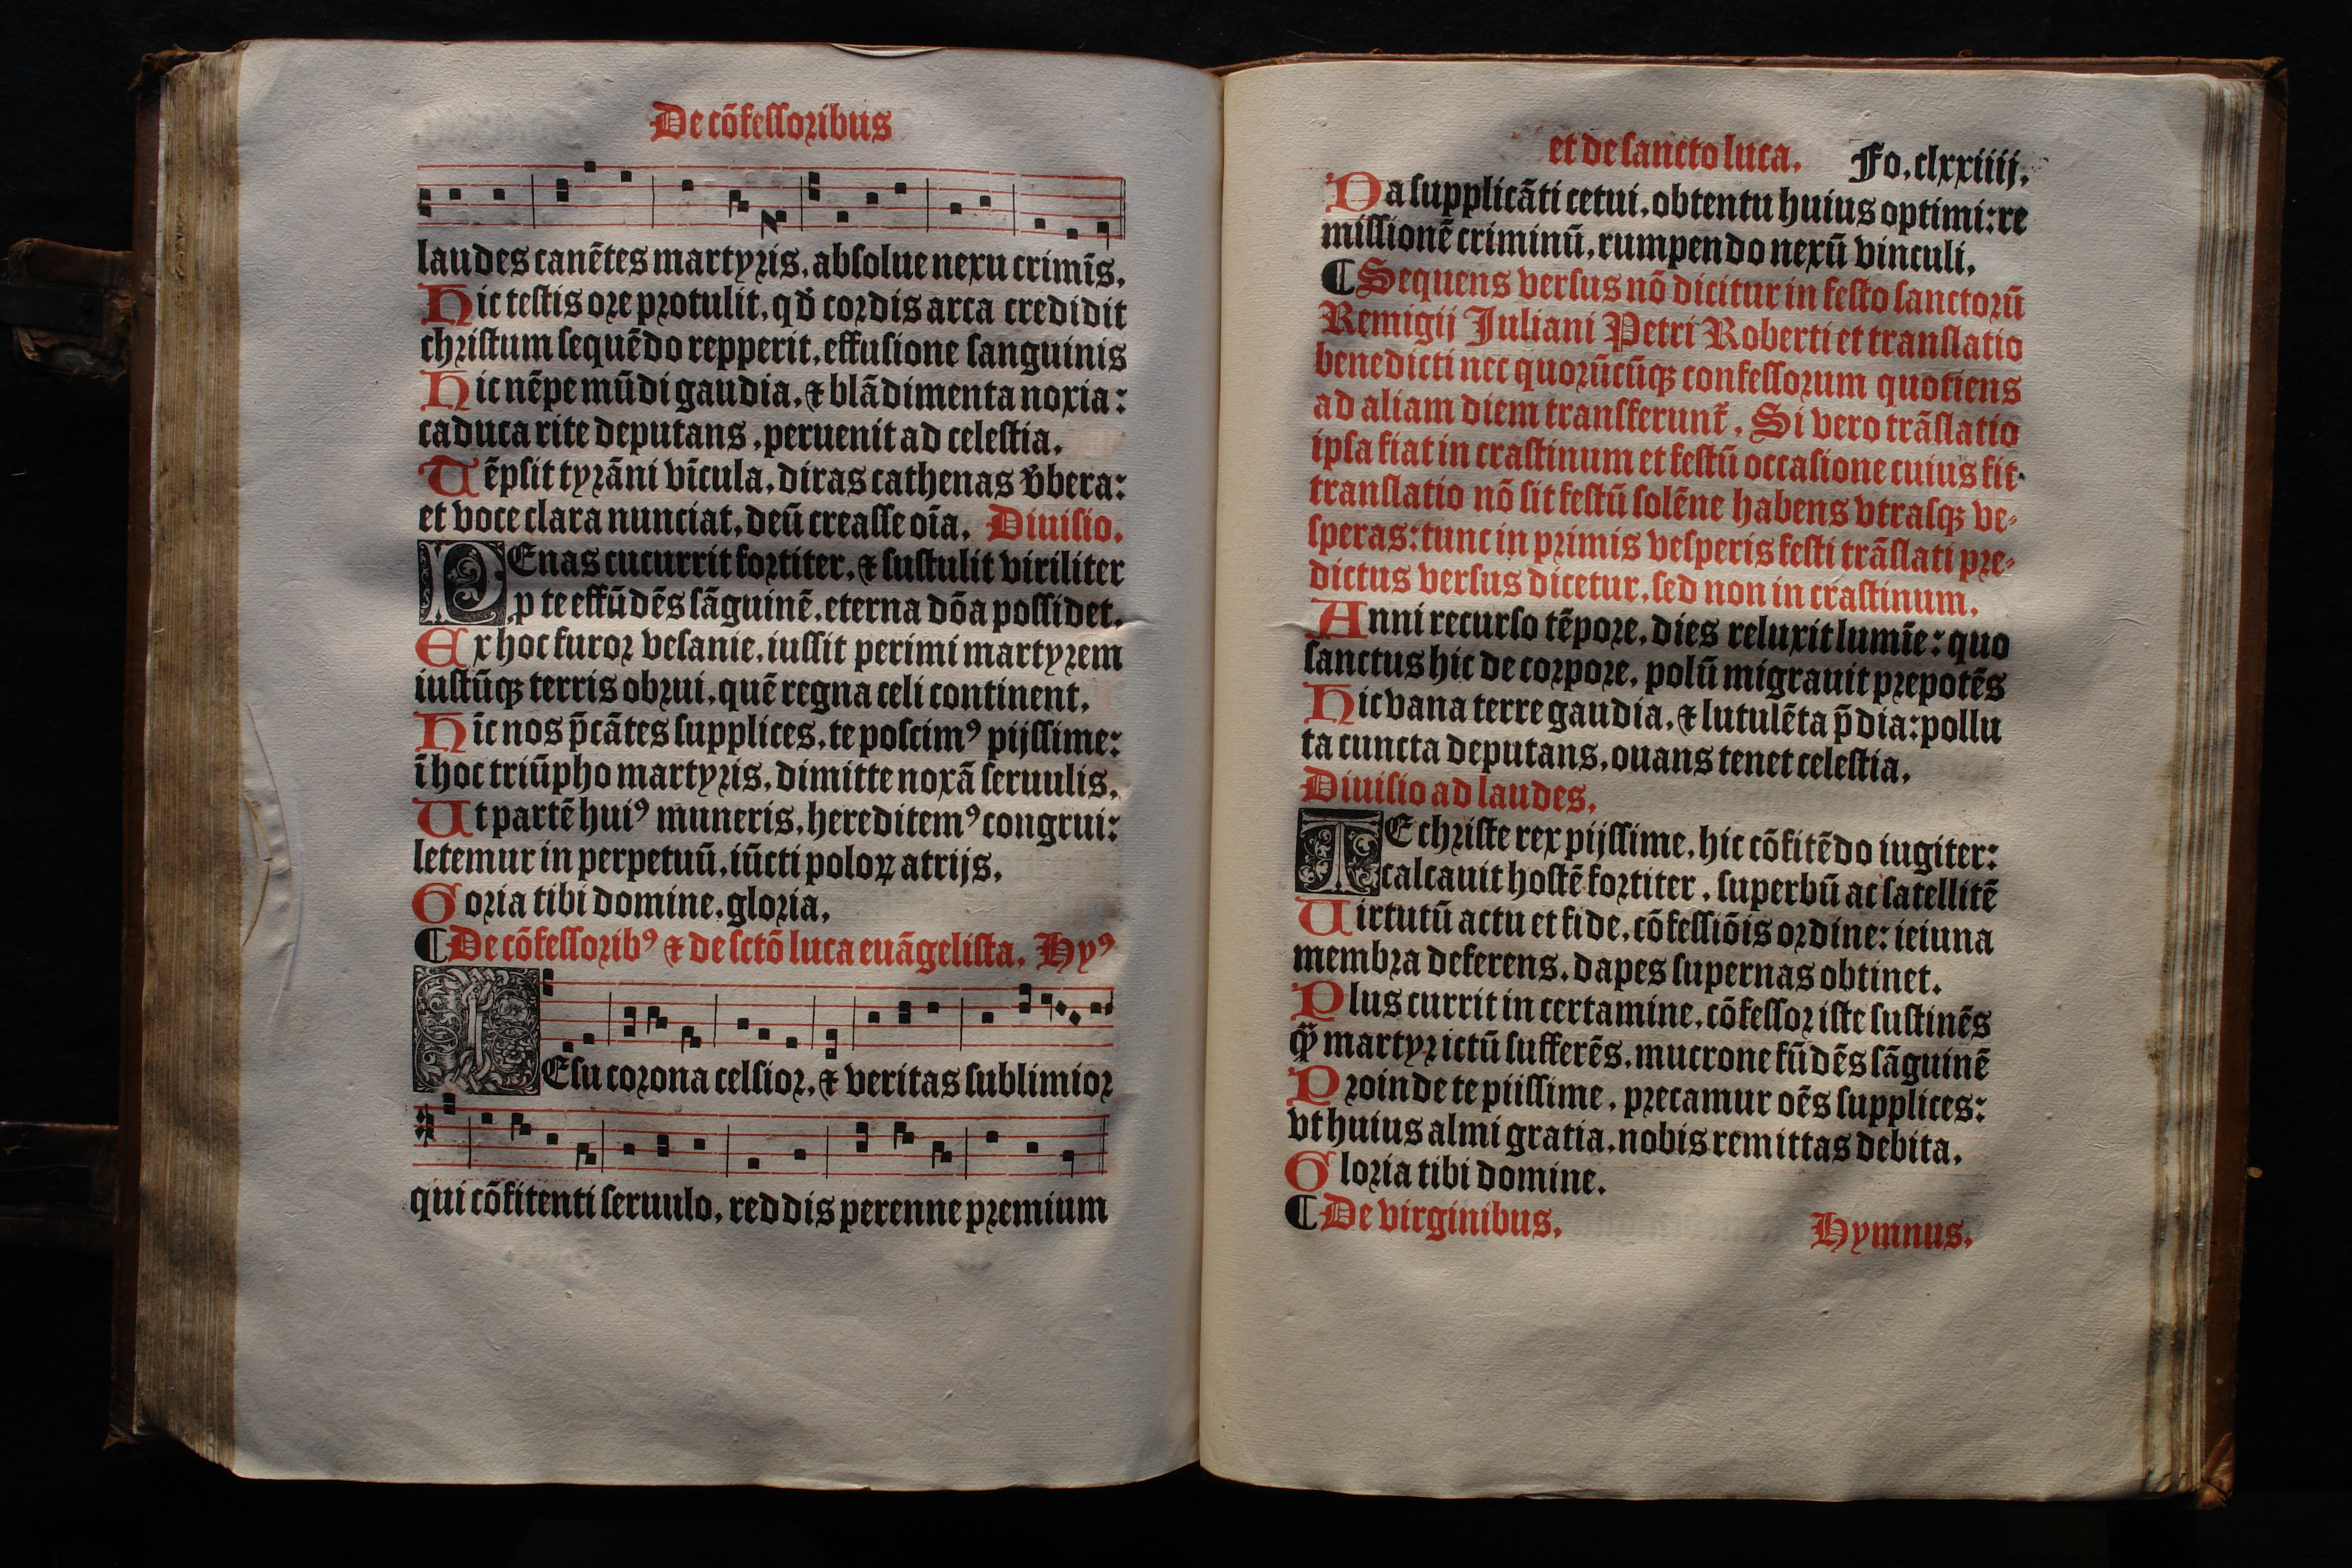 De cõfessoribus
laudes canẽtes martyris, absolue nexu crimĩs.
Hic testis ore protulit, qđ cordis arca credidit
christum sequẽdo repperit, effusione sanguinis
Hic nẽpe mũdi gaudia, ⁊ blãdimenta noxia:
caduca rite deputans, peruenit ad celestia.
Tẽpsit tyrãni vĩcula, diras cathenas v̾bera:
et voce clara nunciat, deũ creasse oĩa. Diuisio.
PEnas cucurrit fortiter, ⁊ sustulit viriliter
ꝓ te effũdẽs sãguinẽ, eterna dõa possidet.
Ex hoc furor vesanie, iussit perimi martyrem
iustũqꝫ terris obrui, quẽ regna celi continent.
Hĩc nos p̃cãtes supplices, te poscimꝰ pijssime:
ĩ hoc triũpho martyris, dimitte noxã seruulis.
Ut partẽ huiꝰ muneris, hereditemꝰ congrui:
letemur in perpetuũ, iũcti poloꝝ atrijs.
Goria tibi domine, gloria.
¶ De cõfessoribꝰ ⁊ de sctõ luca euãgelista. Hyꝰ
IEsu corona celsior, ⁊ veritas sublimior
qui cõfitenti seruulo, reddis perenne premium
et de sancto luca. Fo. clxxiiij.
Da supplicãti cetui, obtentu huius optimi: re
missionẽ criminũ, rumpendo nexũ vinculi.
¶ Sequens versus nõ dicitur in festo sanctorũ
Remigij Juliani Petri Roberti et translatio
benedicti nec quorũcũqꝫ confessorum quotiens
ad aliam diem transferunt᷑. Si vero trãslatio
ipsa fiat in crastinum et festũ occasione cuius fit
translatio nõ sit festũ solẽne habens vtrasqꝫ ve⸗
speras: tunc in primis vesperis festi trãslati pre⸗
dictus versus dicetur, sed non in crastinum.
Anni recurso tẽpore, dies reluxit lumĩe: quo
sanctus hic de corpore, polũ migrauit prepotẽs
Hic vana terre gaudia, ⁊ lutulẽta p̃dia: pollu
ta cuncta deputans, ouans tenet celestia.
Diuisio ad laudes.
TE christe rex pijssime, hic cõfitẽdo iugiter:
calcauit hostẽ fortiter, superbũ ac satellitẽ
Uirtutũ actu et fide, cõfessiõis ordine: ieiuna
membra deferens, dapes supernas obtinet.
Plus currit in certamine, cõfessor iste sustinẽs
ꝙ̃ martyr ictũ sufferẽs, mucrone fũdẽs sãguinẽ
Proinde te piissime, precamur oẽs supplices:
vt huius almi gratia, nobis remittas debita.
Gloria tibi domine.
¶ De virginibus. Hymnus.